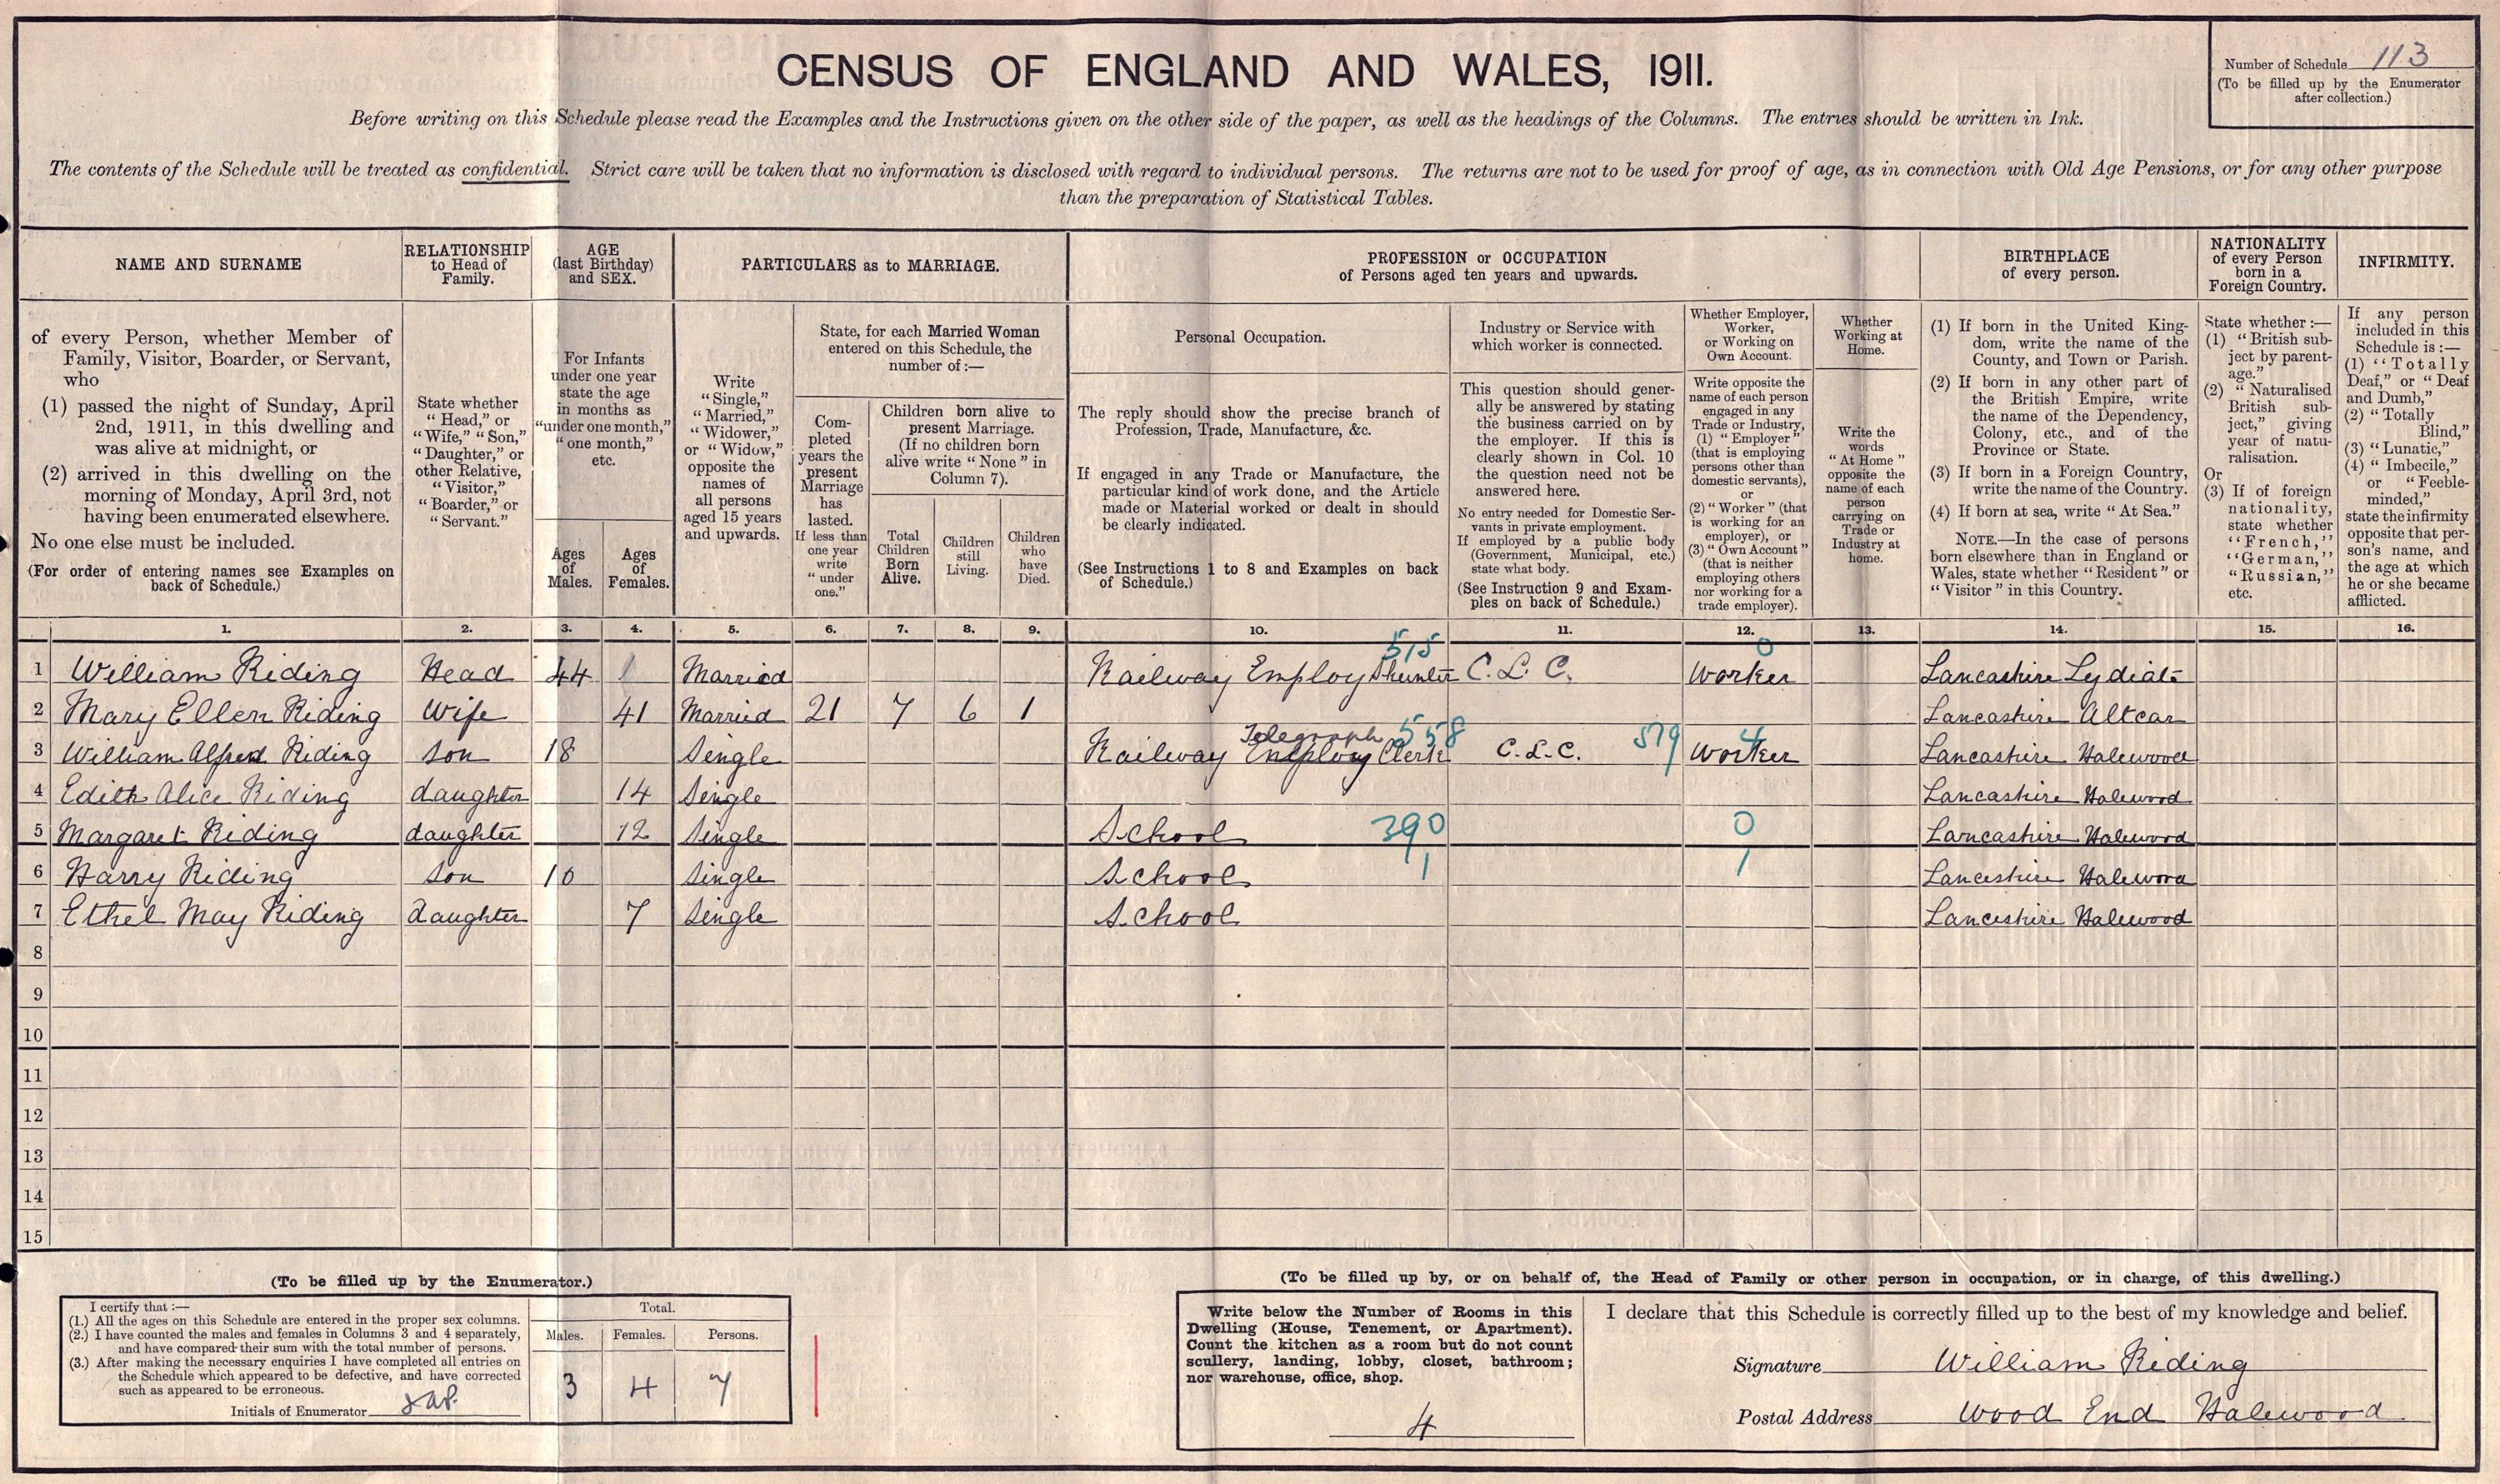 CENSUS OF ENGLAND AND WALES, 1911.
Number of Schedule 113
(To be filled up by the Enumerator
after collection.)
Before writing on this Schedule please read the Examples and the Instructions given on the other side of the paper, as well as the headings of the Columns. The entries should be written in Ink.
The contents of the Schedule will be treated as confidential. Strict care will be taken that no information is disclosed with regard to individual persons. The returns are not to be used for proof of age, as in connection with Old Age Pensions, or for any other purpose
than the preparation of Statistical Tables.
NAME AND SURNAME
of every Person, whether Member of
Family, Visitor, Boarder, or Servant,
who
(1) passed the night of Sunday, April
2nd, 1911, in this dwelling and
was alive at midnight, or
(2) arrived in this dwelling on the
morning of Monday, April 3rd, not
having been enumerated elsewhere.
No one else must be included.
(For order of entering names see Examples on
back of Schedule.)
RELATIONSHIP
to Head of
Family.
State whether
"Head," or
"Wife," "Son,"
"Daughter," or
other Relative,
"Visitor,"
"Boarder," or
"Servant."
AGE
(last Birthday)
and SEX.
For Infants
under one year
state the age
in months as
"under one month,"
"one month,"
etc.
Ages
of
Males.
Ages
of
Females.
PARTICULARS as to MARRIAGE.
Write
"Single,"
"Married,"
"Widower,"
or "Widow,"
opposite the
names of
all persons
aged 15 years
and upwards.
State, for each Married Woman
entered on this Schedule, the
number of :—
Com-
pleted
years the
present
Marriage
has
lasted.
If less than
one year
write
"under
one."
Children born alive to
present Marriage.
(If no children born
alive write "None" in
Column 7).
Total
Children
Born
Alive.
Children
still
Living.
Children
who
have
Died.
PROFESSION or OCCUPATION
of Persons aged ten years and upwards.
Personal Occupation.
The reply should show the precise branch of
Profession, Trade, Manufacture, &c.
If engaged in any Trade or Manufacture, the
particular kind of work done, and the Article
made or Material worked or dealt in should
be clearly indicated.
(See Instructions 1 to 8 and Examples on back
of Schedule.)
Industry or Service with
which worker is connected.
This question should gener-
ally be answered by stating
the business carried on by
the employer. If this is
clearly shown in Col. 10
the question need not be
answered here.
No entry needed for Domestic Ser-
vants in private employment.
If employed by a public body
(Government, Municipal, etc.)
state what body.
(See Instruction 9 and Exam-
ples on back of Schedule.)
Whether Employer,
Worker,
or Working on
Own Account.
Write opposite the
name of each person
engaged in any
Trade or Industry,
(1) "Employer"
(that is employing
persons other than
domestic servants),
or
(2) "Worker" (that
is working for an
employer), or
(3) "Own Account"
(that is neither
employing others
nor working for a
trade employer).
Whether
Working at
Home.
Write the
words
"At Home"
opposite the
name of each
person
carrying on
Trade or
Industry at
home.
BIRTHPLACE
of every person.
(1) If born in the United King-
dom, write the name of the
County, and Town or Parish.
(2) If born in any other part of
the British Empire, write
the name of the Dependency,
Colony, etc., and of the
Province or State.
(3) If born in a Foreign Country,
write the name of the Country.
(4) If born at sea, write "At Sea."
NOTE.—In the case of persons
born elsewhere than in England or
Wales, state whether "Resident" or
"Visitor" in this Country.
NATIONALITY
of every Person
born in a
Foreign Country.
State whether :—
(1) "British sub-
ject by parent-
age."
(2) "Naturalised
British sub-
ject," giving
year of natu-
ralisation.
Or
(3) If of foreign
nationality,
state whether
"French,"
"German,"
"Russian,"
etc.
INFIRMITY.
If any person
included in this
Schedule is :—
(1) "Totally
Deaf," or "Deaf
and Dumb,"
(2) "Totally
Blind,"
(3) "Lunatic,"
(4) "Imbecile,"
or "Feeble-
minded,"
state the infirmity
opposite that per-
son's name, and
the age at which
he or she became
afflicted.
1. 2. 3. 4. 5. 6. 7. 8. 9. 10. 11. 12. 13. 14. 15. 16.
515 0
1 William Riding Head 44 Married Railway Employ Shunter C. L. C. Worker Lancashire Lydiate
2 Mary Ellen Riding Wife 41 Married 21 7 6 1 Lancashire Altcar
Telegraph 558 579 4
3 William Alfred Riding Son 18 Single Railway Employ Clerk C.L.C. Worker Lancashire Halewood
4 Edith Alice Riding daughter 14 Single Lancashire Halewood
5 Margaret Riding daughter 12 Single School 390 0 Lancashire Halewood
6 Harry Riding Son 10 Single School 1 1 Lancashire Halewood
7 Ethel May Riding Daughter 7 Single School Lanceshire Halewood
8
9
10
11
12
13
14
15
(To be filled up by the Enumerator.)
I certify that :—
(1.) All the ages on this Schedule are entered in the proper sex columns.
(2.) I have counted the males and females in Columns 3 and 4 separately,
and have compared their sum with the total number of persons.
(3.) After making the necessary enquiries I have completed all entries on
the Schedule which appeared to be defective, and have corrected
such as appeared to be erroneous.
Initials of Enumerator
Total.
Males. Females. Persons.
3 4 7
(To be filled up by, or on behalf of, the Head of Family or other person in occupation, or in charge, of this dwelling.)
Write below the Number of Rooms in this
Dwelling (House, Tenement, or Apartment).
Count the kitchen as a room but do not count
scullery, landing, lobby, closet, bathroom;
nor warehouse, office, shop.
4
I declare that this Schedule is correctly filled up to the best of my knowledge and belief.
Signature William Riding
Postal Address Wood End Halewood